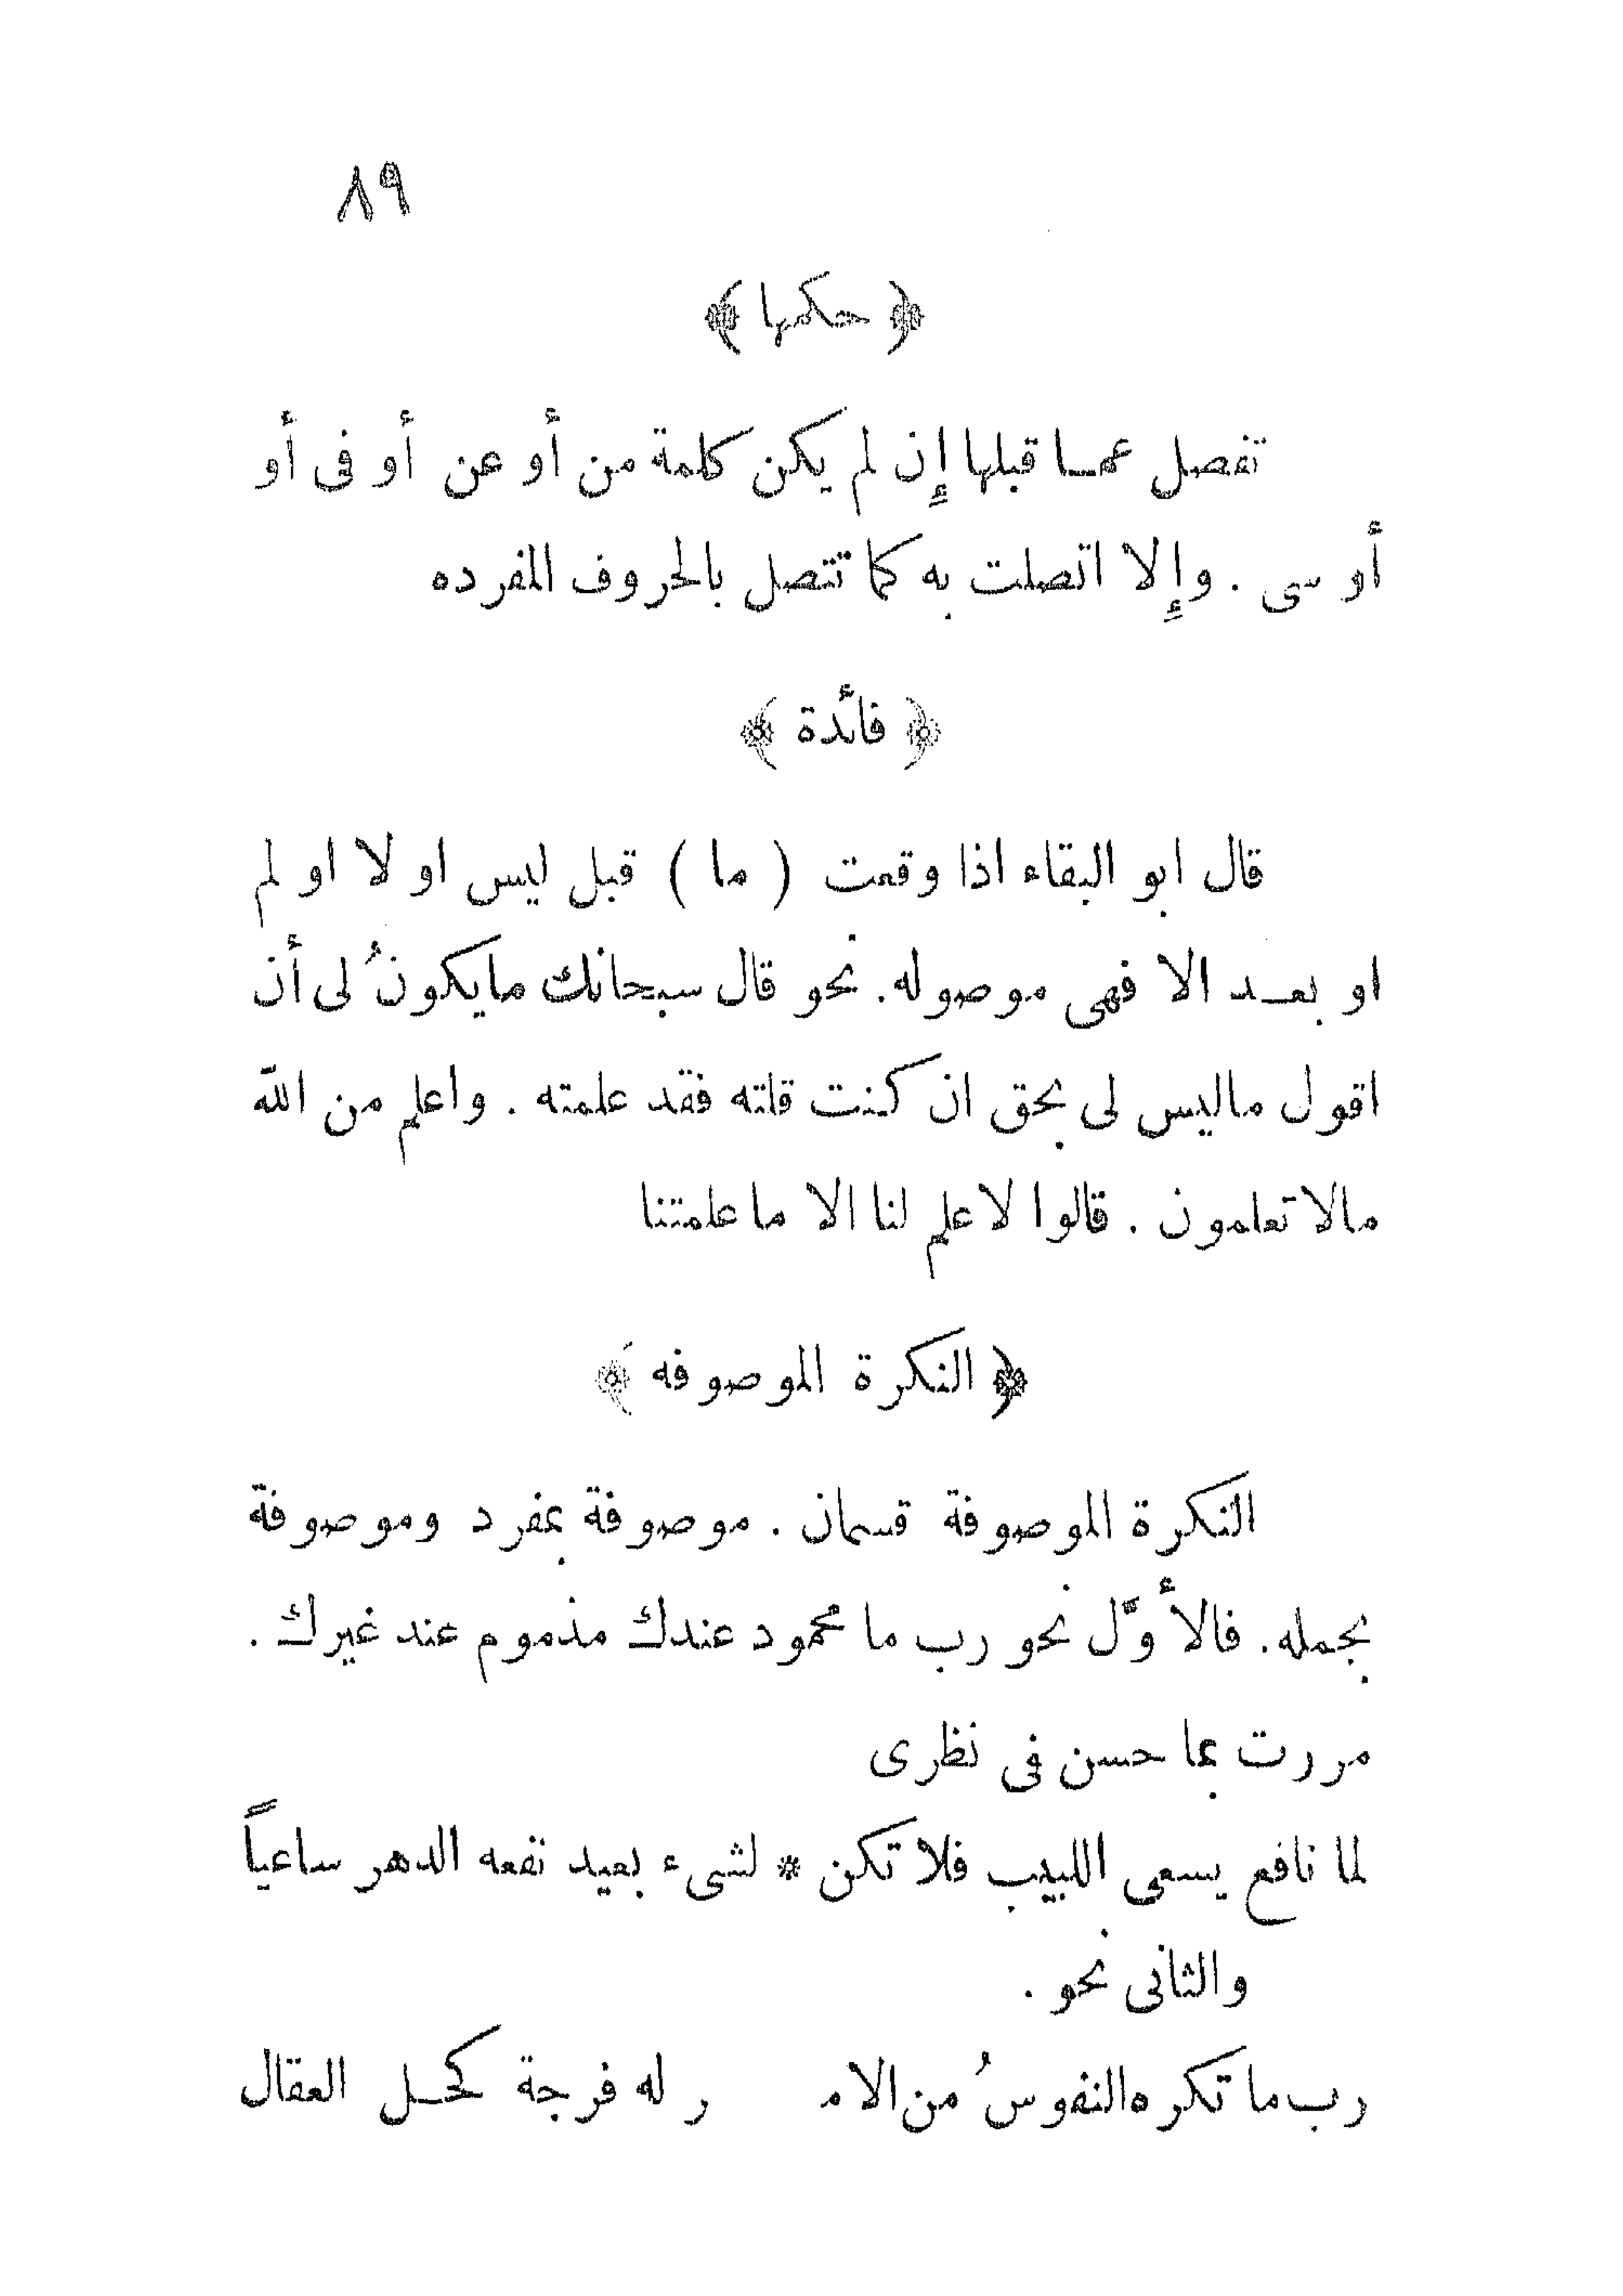 ٨٩
﴿ حكمها ﴾
تفصل عمـا قبلها إِن لم يكن كلمة من أو عن أو فى أو
أو سى . وإِلا اتصلت به كما تتصل بالحروف المفرده
﴿ فائدة ﴾
قال ابو البقاء اذا وقعت ( ما ) قبل ليس او لا او لم
او بعـد الا فهى موصوله. نحو قال سبحانك مايكونُ لى أن
اقول ماليس لى بحق ان كنت قلته فقد علمته . واعلم من الله
مالا تعلمون . قالوا لا علم لنا الا ما علمتنا
﴿ النكرة الموصوفه ﴾
النكرة الموصوفة قسمان . موصوفة بمفرد وموصوفة
بجمله. فالأوّل نحو رب ما محمود عندك مذموم عند غيرك .
مررت بما حسن فى نظرى
لما نافع يسعى اللبيب فلا تكن * لشىء بعيد نفعه الدهر ساعياً
والثانى نحو .
رب ما تكره النفوسُ من الامـ ر له فرجة كحـل العقال